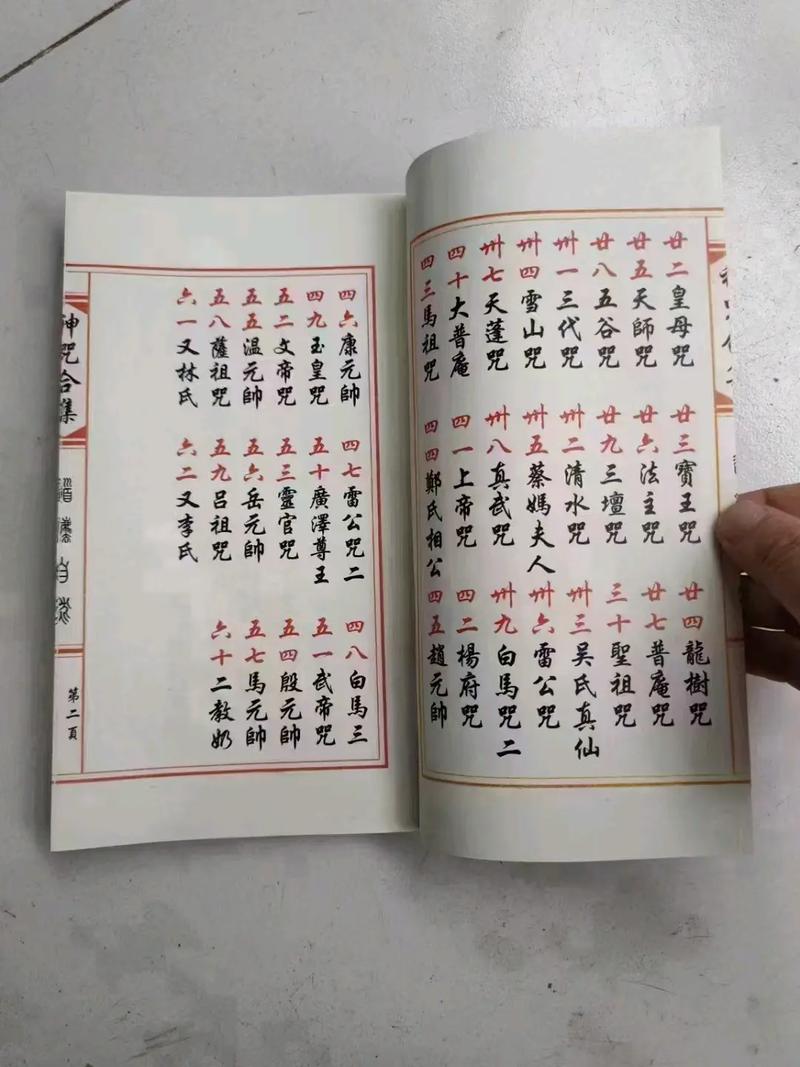 廿二皇母咒
廿三寶王咒
廿四龍樹咒
廿五天師咒
廿六法主咒
廿七普庵咒
廿八五谷咒
廿九三壇咒
三十聖祖咒
卅一三代咒
卅二清水咒
卅三吴氏真仙
卅四雪山咒
卅五蔡媽夫人
卅六雷公咒
卅七天蓬咒
卅八真武咒
卅九白馬咒二
四十大普庵
四一上帝咒
四二楊府咒
四三馬祖咒
四四鄭氏相公
四五趙元帥
四六康元帥
四七雷公咒二
四八白馬三
四九玉皇咒
五十廣澤尊王
五一武帝咒
五二文帝咒
五三靈官咒
五四殷元帥
五五温元帥
五六岳元帥
五七馬元帥
五八薩祖咒
五九吕祖咒
六十二教奶
六一又林氏
六二又李氏
神咒合集
道法自然
第二頁